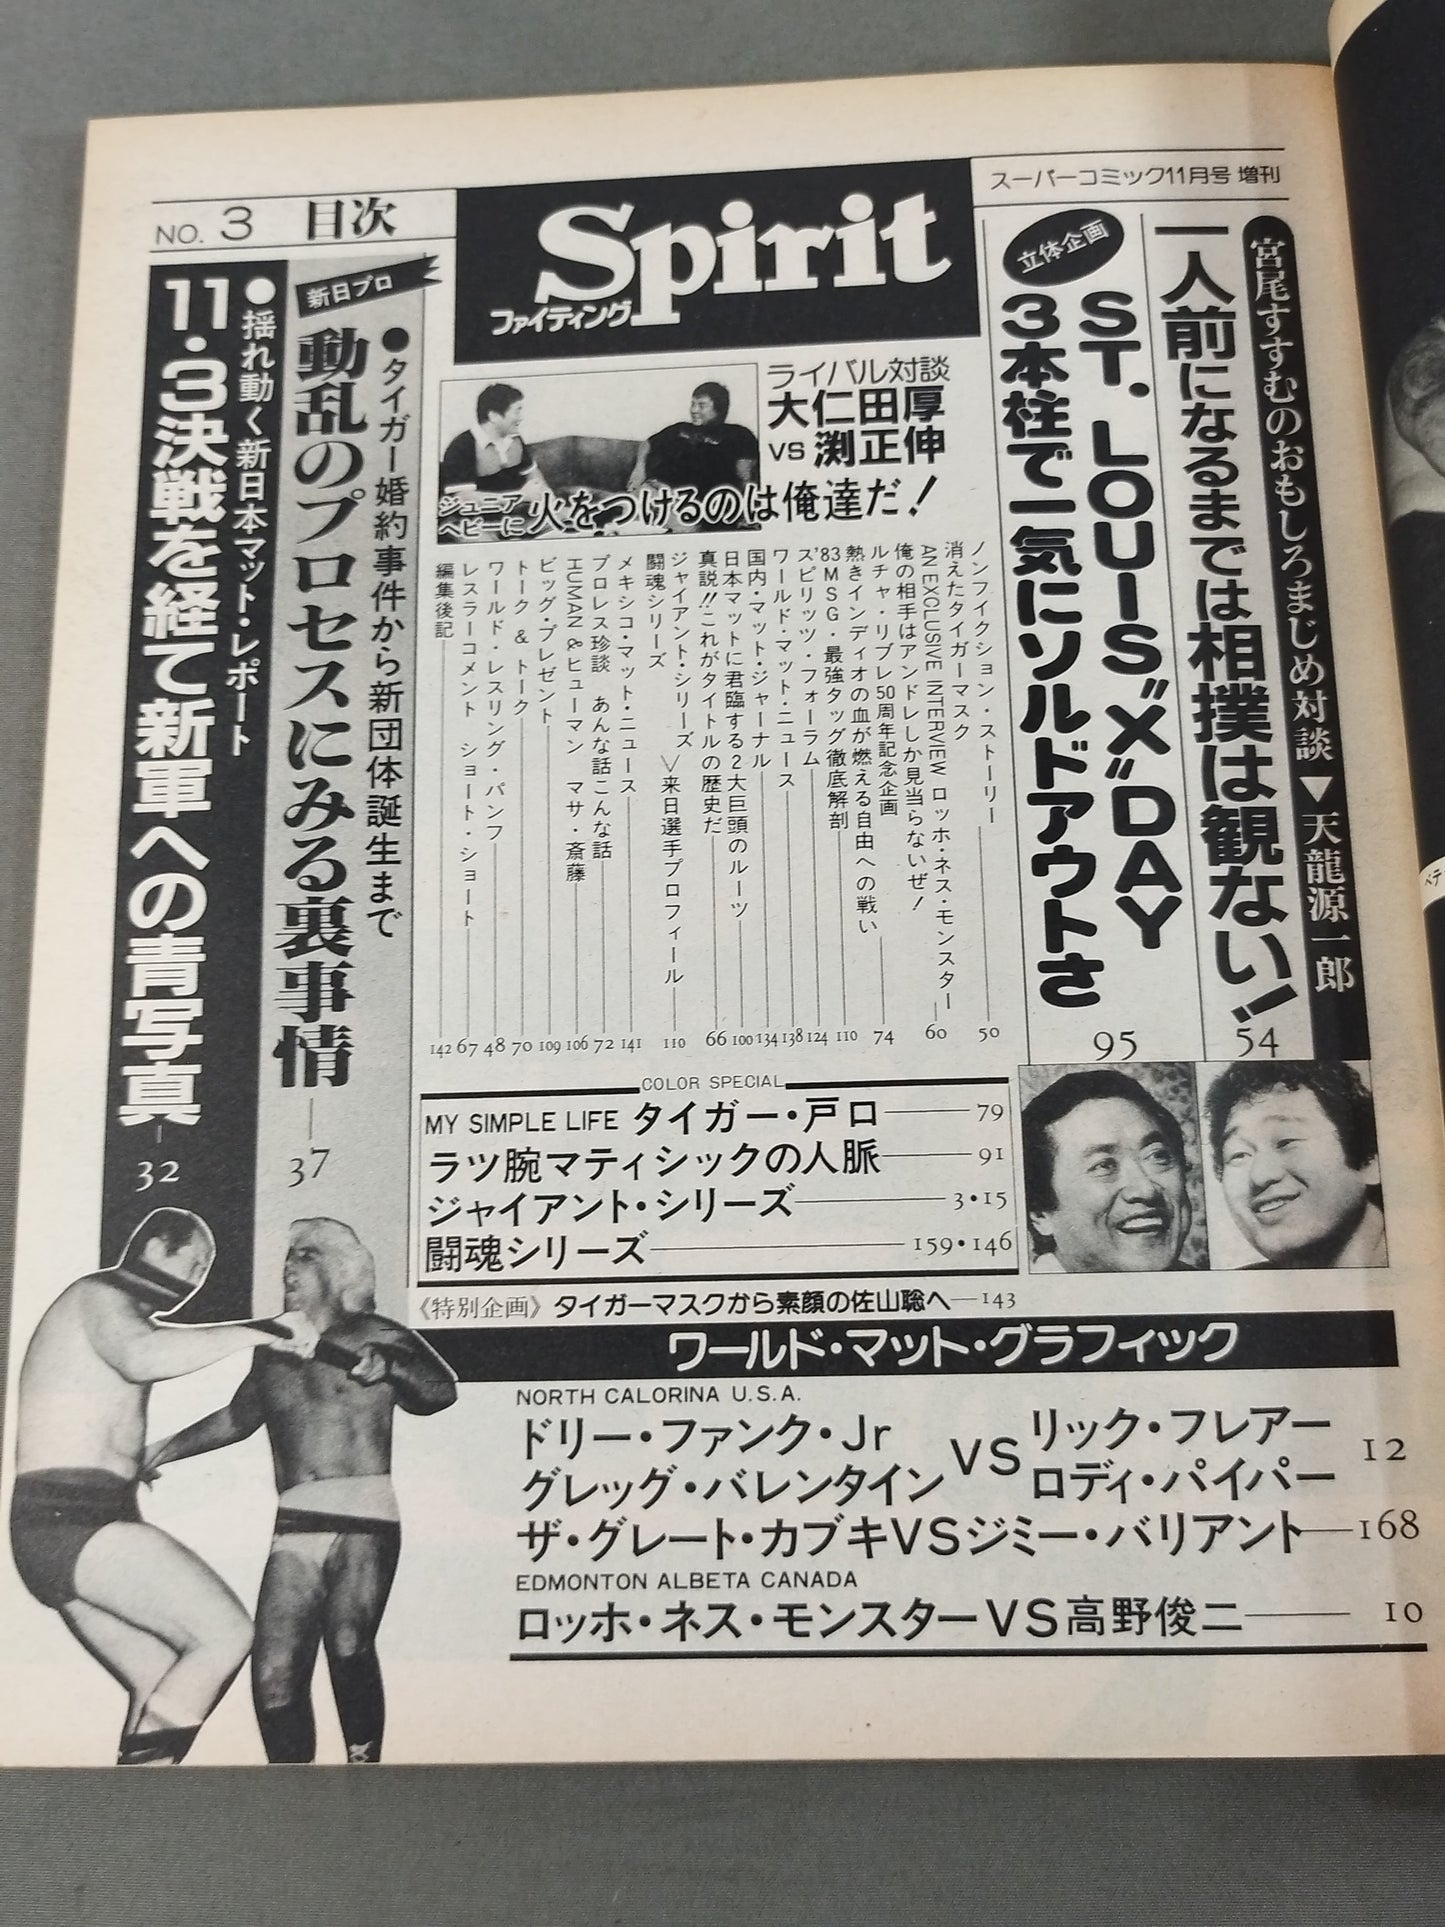 スーパーコミック11月号 増刊
NO. 3 目次
ファイティング Spirit
宮尾すすむのおもしろまじめ対談▼天龍源一郎
一人前になるまでは相撲は観ない! 54
立体企画
ST. LOUIS"X"DAY
3本柱で一気にソルドアウトさ 95
ライバル対談
大仁田厚
VS 渕正伸
ジュニアヘビーに火をつけるのは俺達だ!
ノンフィクション・ストーリー
消えたタイガーマスク 50
AN EXCLUSIVE INTERVIEW ロッホ・ネス・モンスター
俺の相手はアンドレしか見当らないぜ! 60
ルチャ・リブレ50周年記念企画
熱きインディオの血が燃える自由への戦い 74
'83MSG・最強タッグ徹底解剖 110
スピリッツ・フォーラム 124
ワールド・マット・ニュース 138
国内・マット・ジャーナル 134
日本マットに君臨する2大巨頭のルーツ 100
真説!!これがタイトルの歴史だ 66
ジャイアント・シリーズ
闘魂シリーズ
＞来日選手プロフィール 110
メキシコ・マット・ニュース 141
プロレス珍談 あんな話こんな話 72
HUMAN&ヒューマン マサ・斎藤 106
ビッグ・プレゼント 109
トーク&トーク 70
ワールド・レスリング・パンフ 48
レスラーコメント ショート・ショート 67
編集後記 142
新日プロ
●タイガー婚約事件から新団体誕生まで
動乱のプロセスにみる裏事情 37
●揺れ動く新日本マット・レポート
11・3決戦を経て新軍への青写真 32
COLOR SPECIAL
MY SIMPLE LIFE タイガー・戸口 79
ラツ腕マティシックの人脈 91
ジャイアント・シリーズ 3・15
闘魂シリーズ 159・146
《特別企画》タイガーマスクから素顔の佐山聡へ 143
ワールド・マット・グラフィック
NORTH CALORINA U.S.A.
ドリー・ファンク・Jr
グレッグ・バレンタイン
VS
リック・フレアー
ロディ・パイパー
12
ザ・グレート・カブキVSジミー・バリアント 168
EDMONTON ALBETA CANADA
ロッホ・ネス・モンスターVS高野俊二 10